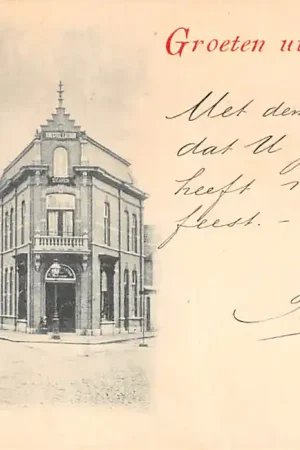 Groeten ui
Met den
dat U
heeft
feest. -